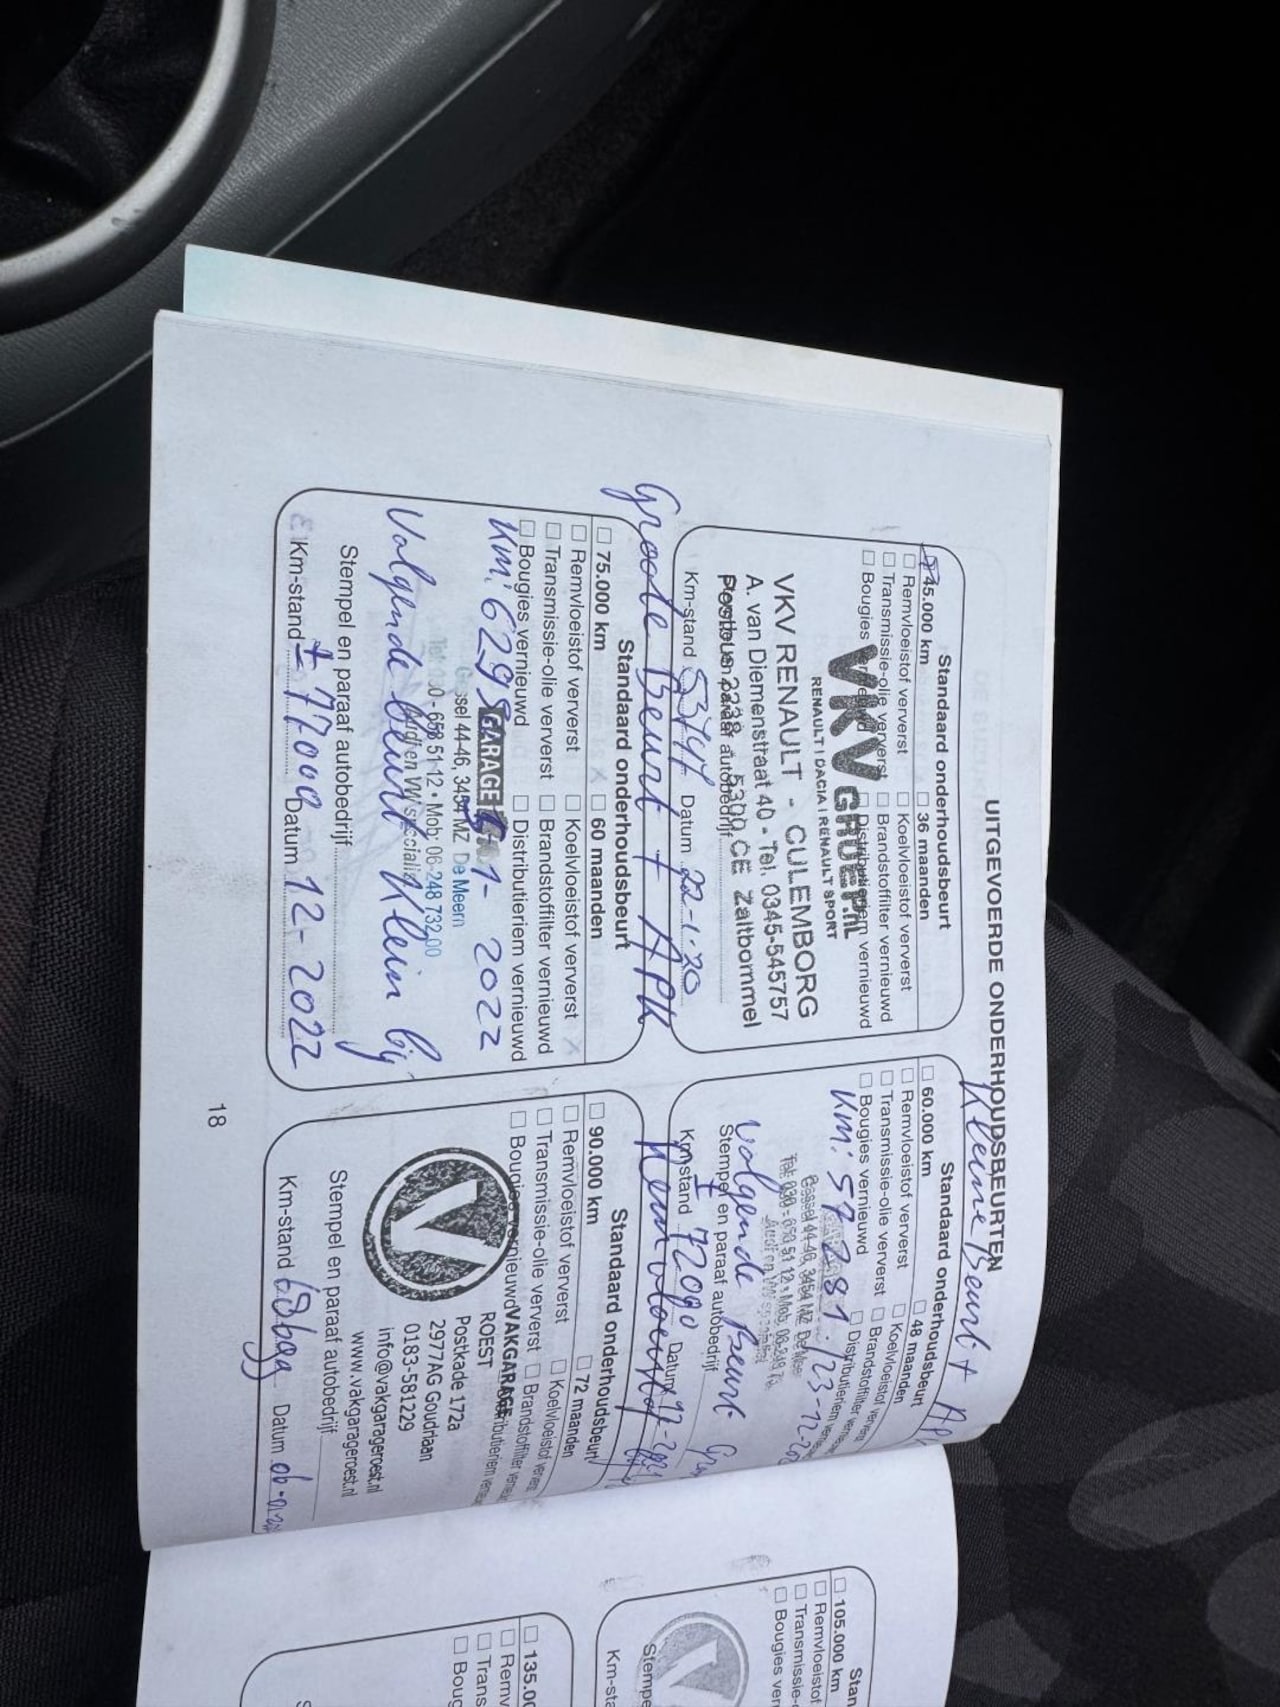 UITGEVOERDE ONDERHOUDSBEURTEN
Standaard onderhoudsbeurt
45.000 km
36 maanden
Remvloeistof ververst
Koelvloeistof ververst
Transmissie-olie ververst
Brandstoffilter vernieuwd
Bougies vernieuwd
Distributieriem vernieuwd
VKV GROEP.nL
RENAULT I DACIA I RENAULT SPORT
VKV RENAULT - CULEMBORG
A. van Diemenstraat 40 - Tel. 0345-545757
Postbus 2238, 5300 CE Zaltbommel
Stempel en paraaf autobedrijf
Km-stand 53744 Datum 22-1-20
Kleine Beurt +
Standaard onderhoudsbeurt
60.000 km
48 maanden
Remvloeistof ververst
Koelvloeistof ververst
Transmissie-olie ververst
Brandstoffilter
Bougies vernieuwd
Distributieriem
Km: 57281
Gessel 44-46, 3454 MZ De Mee
Tel: 030 - 658 51 12 • Mob: 06-248 73
Audi en VW specialist
Volgende Beurt
Stempel en paraaf autobedrijf
Km-stand ± 72000 Datum 12-202
Groote Beurt + APK
Standaard onderhoudsbeurt
75.000 km
60 maanden
Remvloeistof ververst
Koelvloeistof ververst
Transmissie-olie ververst
Brandstoffilter vernieuwd
Bougies vernieuwd
Distributieriem vernieuwd
GARAGE
2022
Gessel 44-46, 3454 MZ De Meern
Tel: 030 - 658 51 12 • Mob: 06-248 732 00
Audi en VW specialist
Volgende beurt Klein bij
Stempel en paraaf autobedrijf
Km-stand ± 77000 Datum 12-2022
Remvloeistof
Standaard onderhoudsbeurt
90.000 km
72 maanden
Remvloeistof ververst
Koelvloeistof
Transmissie-olie ververst
Brandstoffilter
Bougies vernieuwd
VAKGARAGE
ROEST
Postkade 172a
2977AG Goudriaan
0183-581229
info@vakgarageroest.nl
www.vakgarageroest.nl
Stempel en paraaf autobedrijf
Km-stand
Datum
18
Stan
105.000 km
Remvloeistof
Transmissie-
Bougies ver
Stempe
Km-sta
135.00
Remv
Trans
Boug